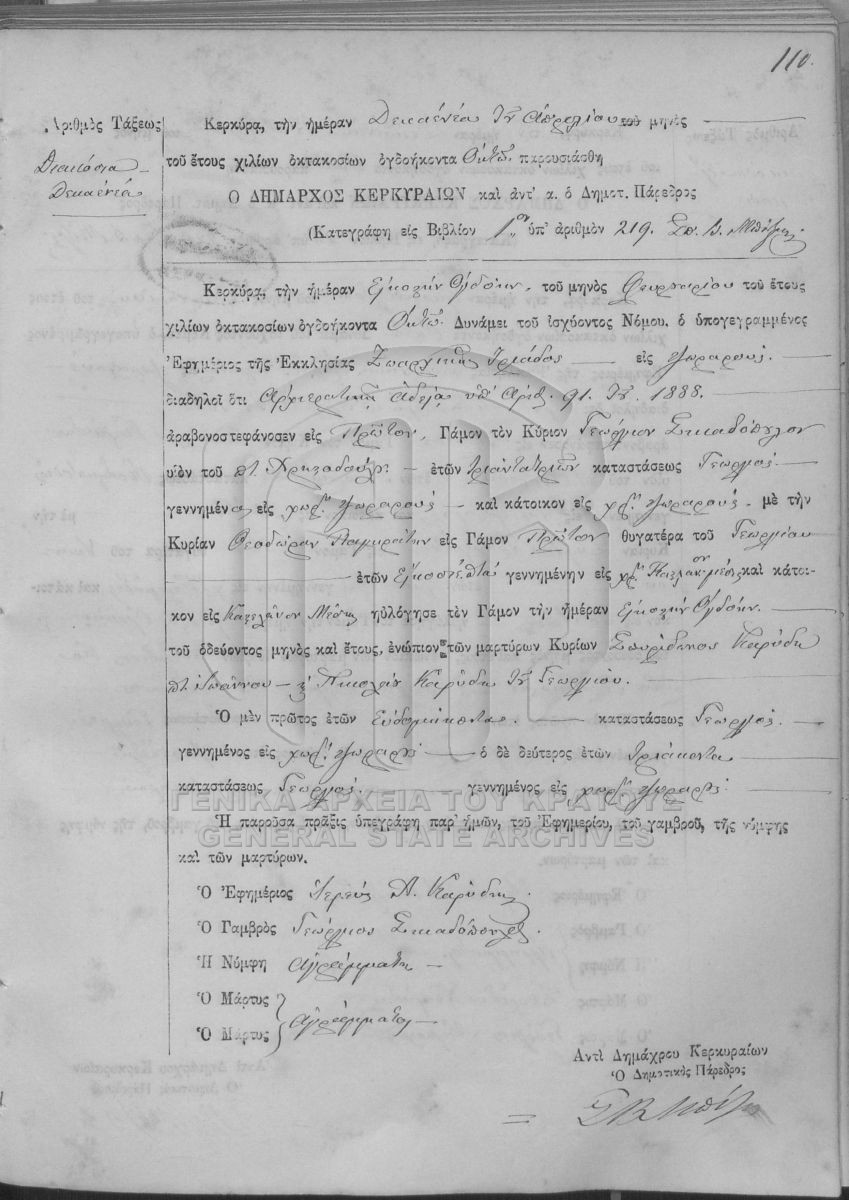 110.
Ἀριθμὸς Τάξεως
Διακόσια
Δεκαεννέα
Κερκύρα, τὴν ἡμέραν Δεκαεννέα τοῦ Ἀπριλίου τοῦ μηνὸς
τοῦ ἔτους χιλίων ὀκτακοσίων ὀγδοήκοντα Ὀκτὼ παρουσιάσθη
Ὁ ΔΗΜΑΡΧΟΣ ΚΕΡΚΥΡΑΙΩΝ καὶ ἀντ' α. ὁ Δημοτ. Πάρεδρος
(Κατεγράφη εἰς Βιβλίον 1ον ὑπ' ἀριθμὸν 219. Σπ. Β.
Κερκύρα, τὴν ἡμέραν Εἰκοστὴν Ὀγδόην. τοῦ μηνὸς Φευρουαρίου τοῦ ἔτους
χιλίων ὀκτακοσίων ὀγδοήκοντα Ὀκτὼ Δυνάμει τοῦ ἰσχύοντος Νόμου. ὁ ὑπογεγραμμένος
Ἐφημέριος τῆς Ἐκκλησίας Τριάδος εἰς
διαδηλοῖ ὅτι Ἀρχιερατικῇ Ἀδείᾳ ὑπ' Ἀριθ. 91. 1888.
ἀραβονοστεφάνοσεν εἰς Πρῶτον Γάμον τὸν Κύριον Γεώργιον Σκιαδόπουλον
υἱὸν τοῦ ἐτῶν τριάντα τριῶν καταστάσεως Γεωργὸς
γεννημένον εἰς χωρ. καὶ κάτοικον εἰς χωρ. μὲ τὴν
Κυρίαν Θεοδώραν εἰς Γάμον Πρῶτον θυγατέρα τοῦ Γεωργίου
ἐτῶν Εἰκοσιεπτὰ γεννημένην εἰς χωρ. καὶ κάτοι-
κον εἰς Καστελάνον Μέσης ηὐλόγησε τὸν Γάμον τὴν ἡμέραν Εἰκοστὴν Ὀγδόην.
τοῦ ὁδεύοντος μηνὸς καὶ ἔτους, ἐνώπιον τῶν μαρτύρων Κυρίων Σπυρίδωνος Καρύδη
Ἰωάννου Νικολάου Καρύδη τοῦ Γεωργίου.
Ὁ μὲν πρῶτος ἐτῶν Ἑβδομήκοντα. καταστάσεως Γεωργὸς
γεννημένος εἰς χωρ. ὁ δὲ δεύτερος ἐτῶν Τριάκοντα
καταστάσεως Γεωργὸς. γεννημένος εἰς χωρ.
ΓΕΝΙΚΑ ΑΡΧΕΙΑ ΤΟΥ ΚΡΑΤΟΥΣ
GENERAL STATE ARCHIVES
Ἡ παροῦσα πρᾶξις ὑπεγράφη παρ' ἡμῶν, τοῦ Ἐφημερίου, τοῦ γαμβροῦ, τῆς νύμφης
καὶ τῶν μαρτύρων.
Ὁ Ἐφημέριος Ἱερεὺς Α. Καρύδης
Ὁ Γαμβρὸς Γεώργιος Σκιαδόπουλος.
Ἡ Νύμφη Ἀγράμματη
Ὁ Μάρτυς
Ὁ Μάρτυς Ἀγράμματοι
Ἀντὶ Δημάχρου Κερκυραίων
Ὁ Δημοτικὸς Πάρεδρος